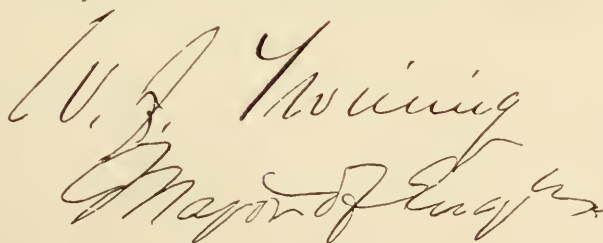 W. J. Twining
Major of Engrs.